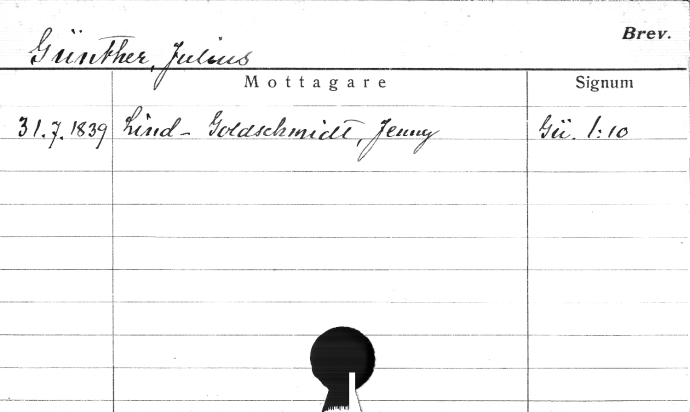 Günther, Julius
Brev.
Mottagare Signum
31.7.1839 Lind-Goldschmidt, Jenny Gü. 1:10